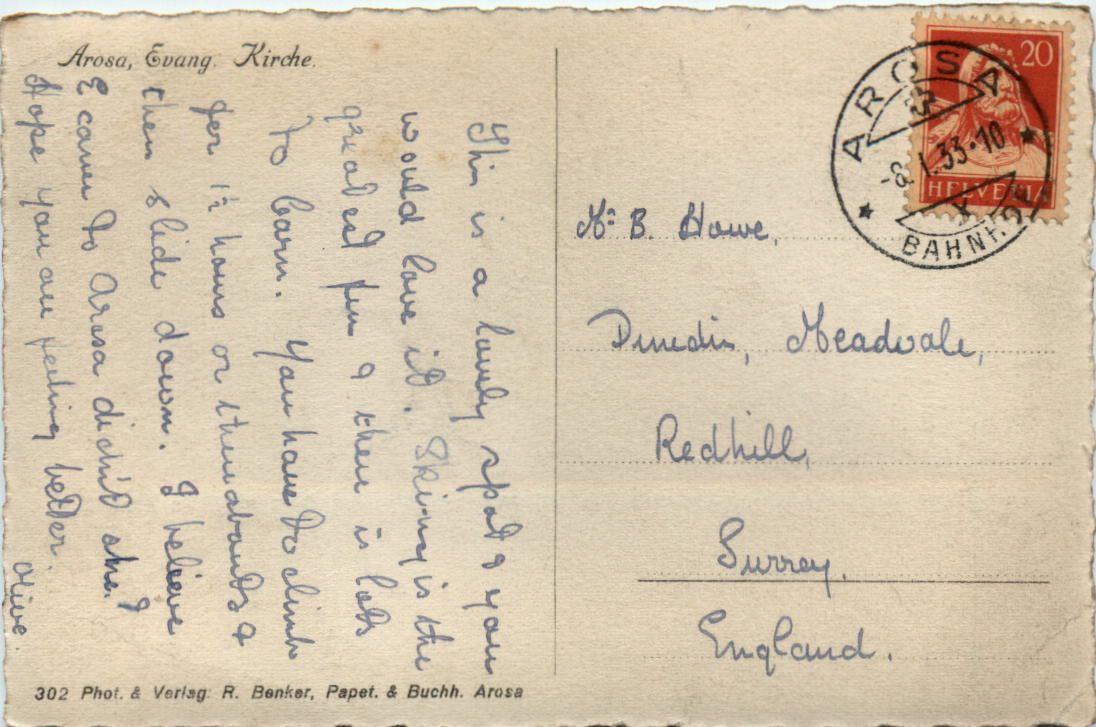 Arosa, Evang. Kirche.
This is a lovely spot & you
would love it. Skiing is the
greatest fun & there is lots
to learn. You have to climb
for 1½ hours or thereabouts &
then slide down. I believe
E came to Arosa didn't she?
Hope you are feeling better.
Olive.
302 Phot. & Verlag: R. Benker, Papet. & Buchh. Arosa
20
HELVETIA
AROSA
-8.I.33·10
BAHNHOF
Mr B. Howe,
Dunedin, Meadvale,
Redhill,
Surrey.
England.